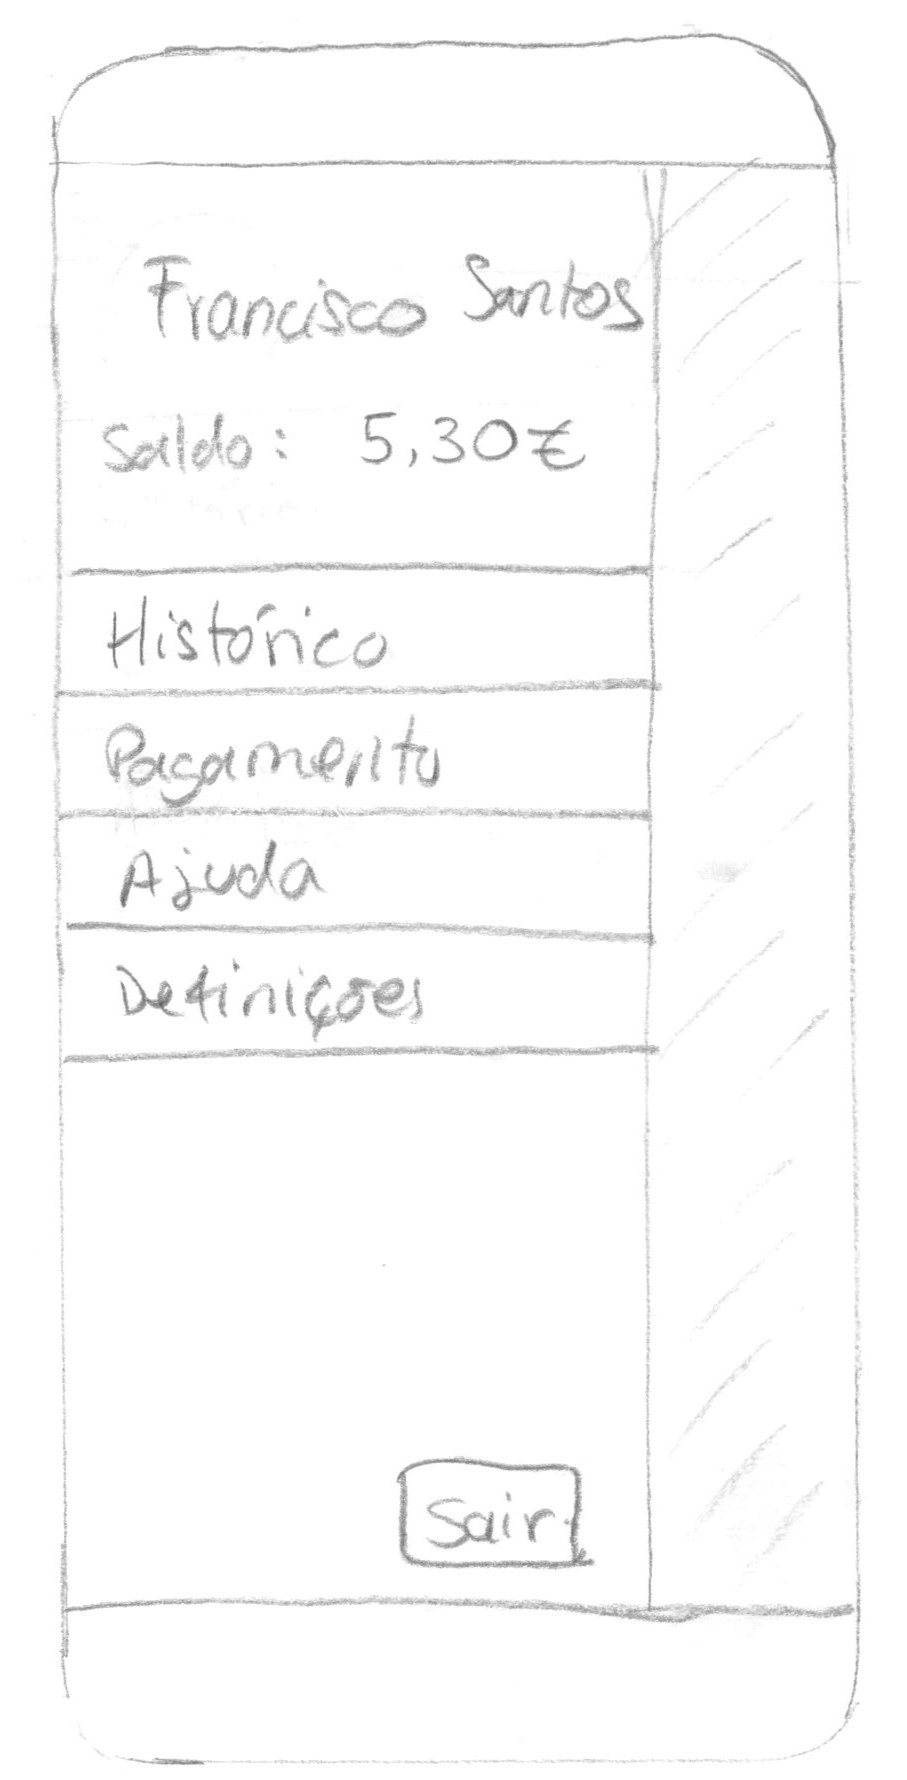 Francisco Santos
Saldo: 5,30€
Histórico
Pagamento
Ajuda
Definições
Sair